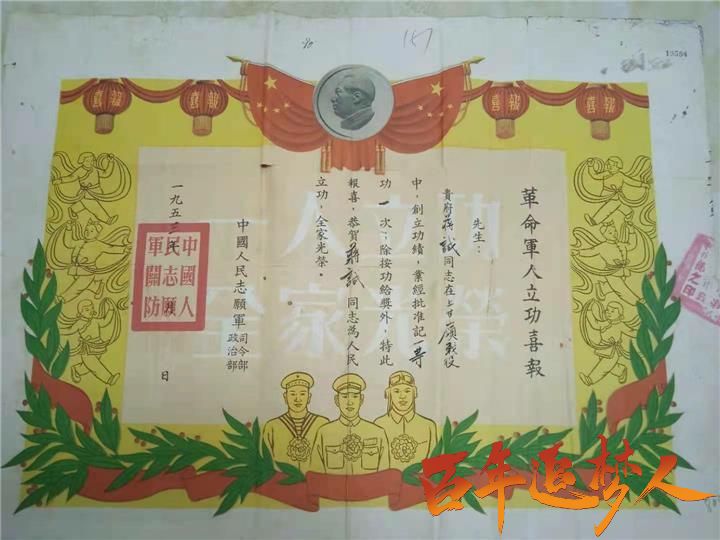 90
157
19584
報喜
報喜
報喜
報喜
革命軍人立功喜報
先生：
貴府蔣誠同志在上甘嶺戰役
中，創立功績，業經批准記一等
功一次；除按功給獎外，特此
報喜，恭賀蔣誠同志為人民
立功，全家光榮。
中國人民志願軍 司令部 政治部
一九五三年
日
中國人
民志願
軍關防
一人立功
全家光榮
百年追梦人